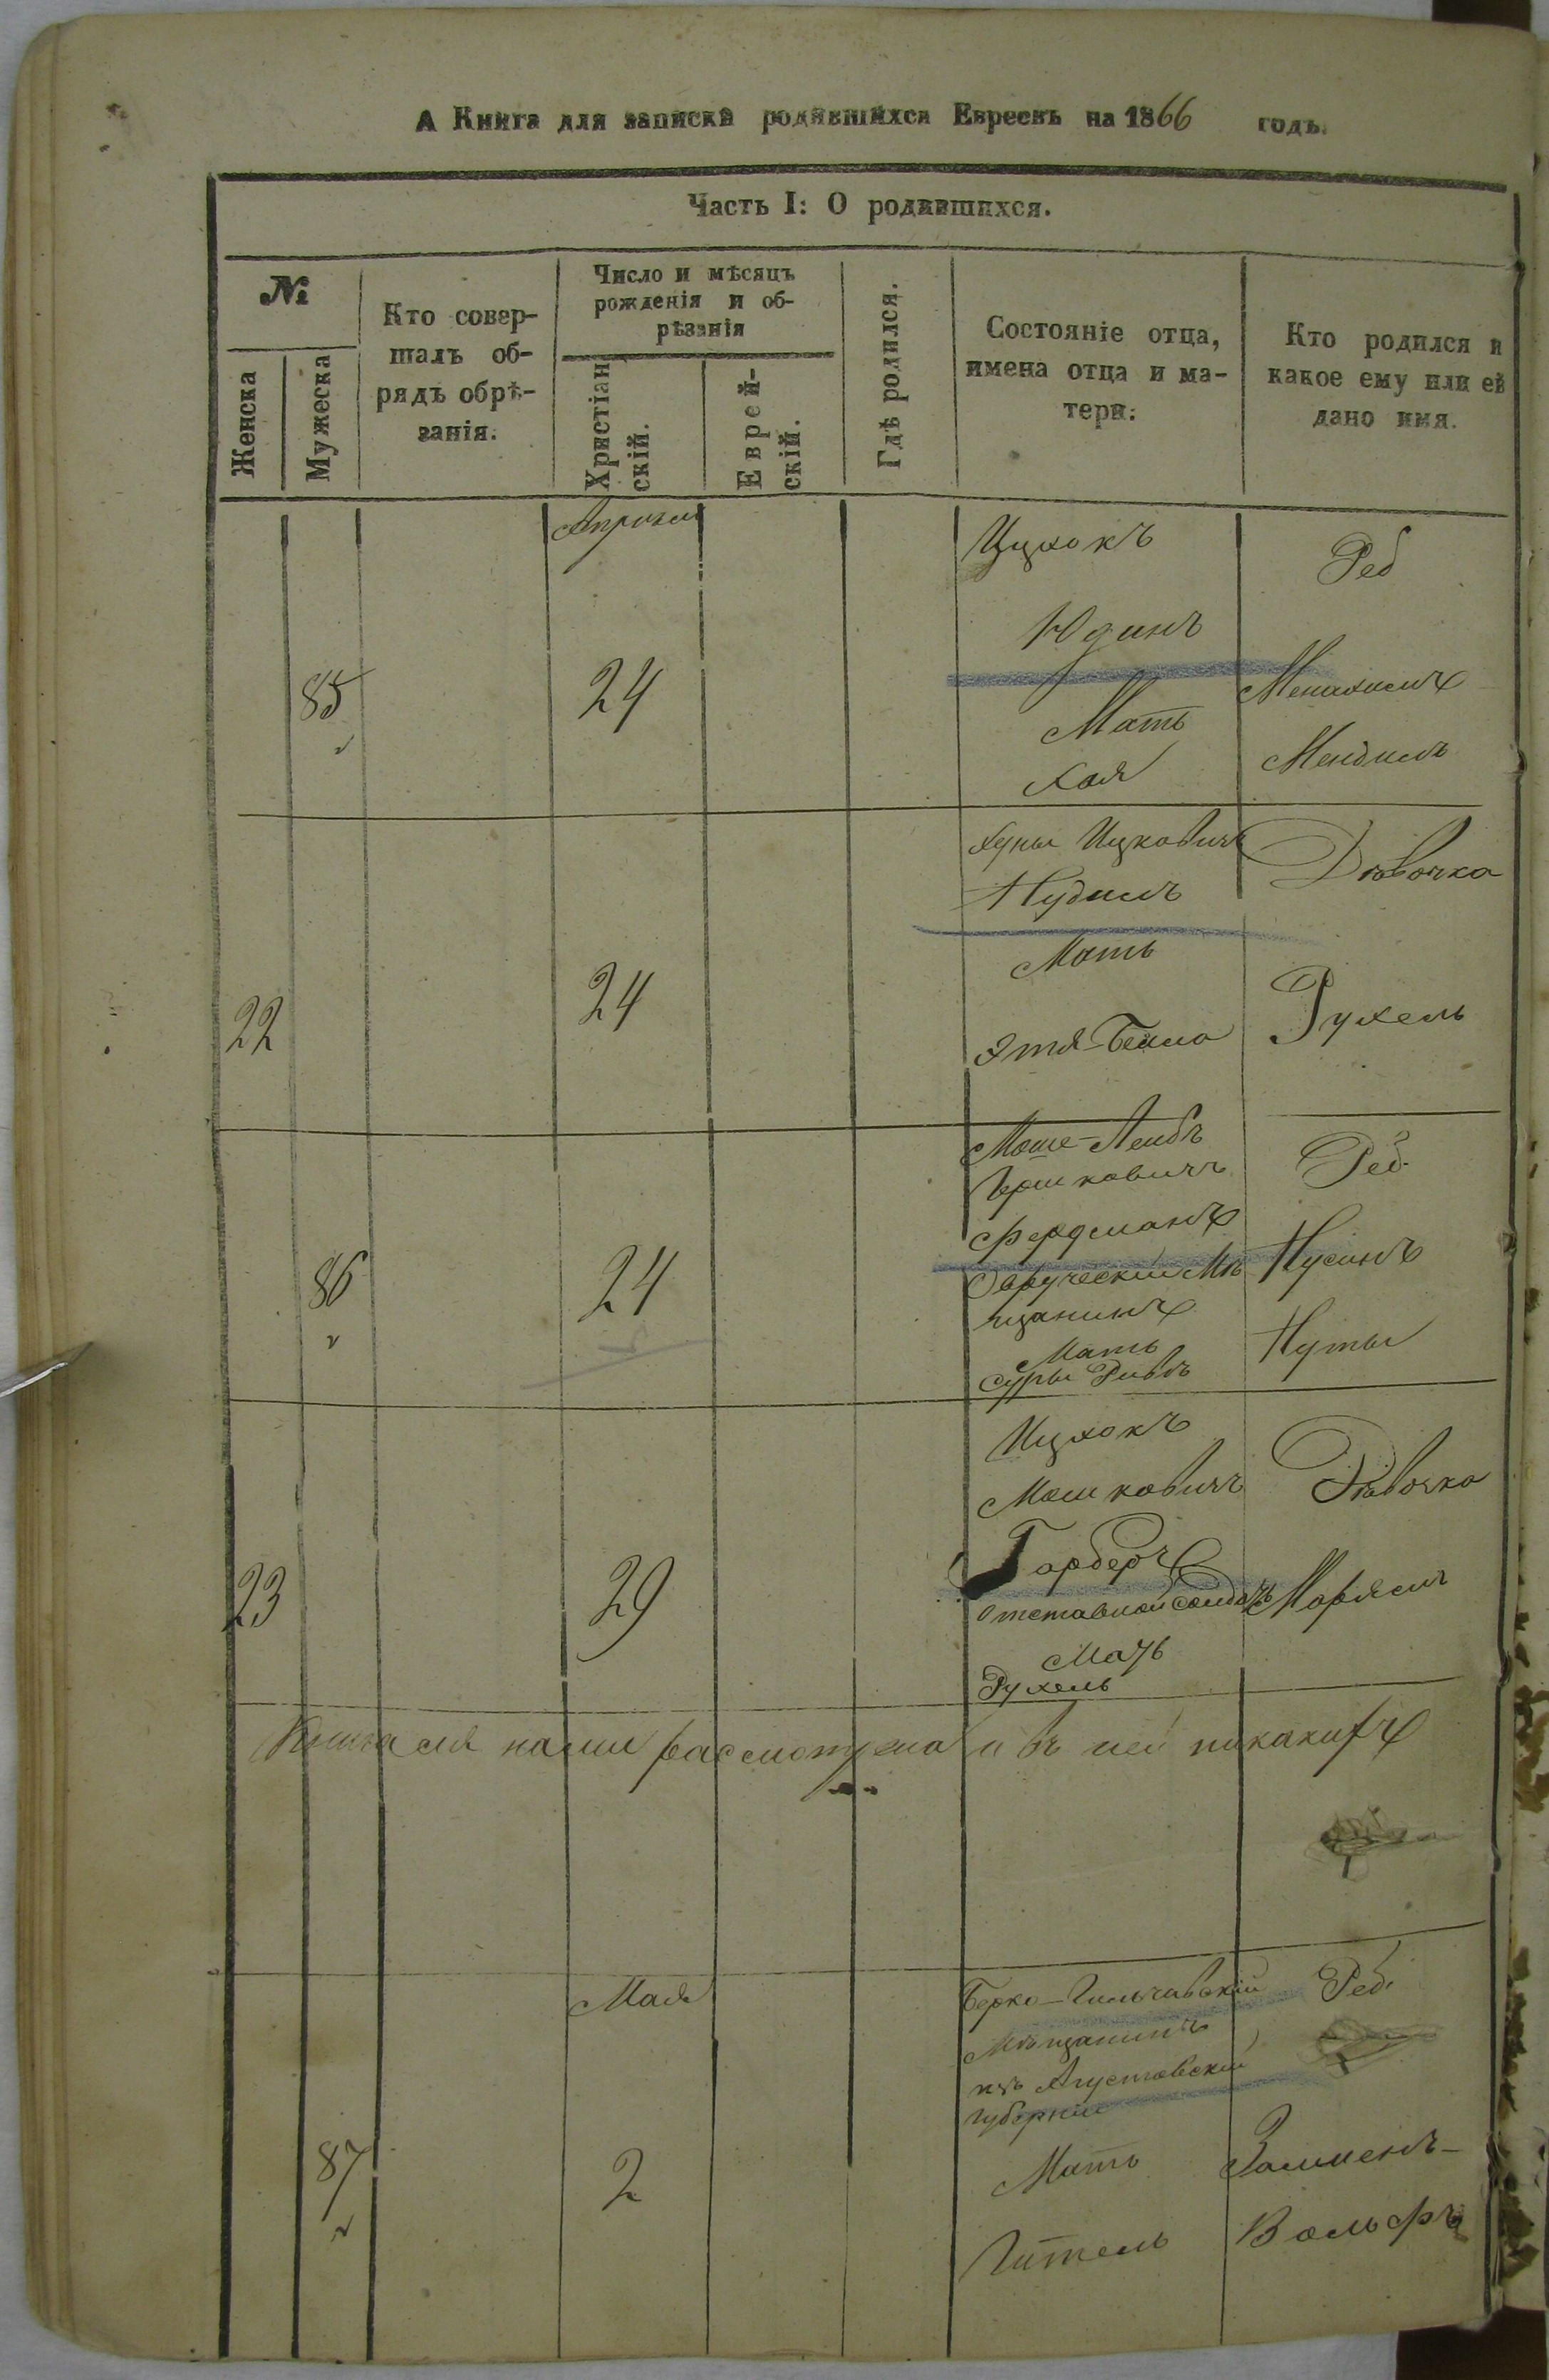 А Книга для записки родившихся Евреевъ на 1866 годъ.
Часть I: О родившихся.
№
Женска
Мужеска
Кто совер-
шалъ об-
рядъ обрѣ-
занія.
Число и мѣсяцъ
рожденія и об-
рѣзанія
Христіан
скій.
Еврей-
скій.
Гдѣ родился.
Состояніе отца,
имена отца и ма-
тери.
Кто родился и
какое ему или ей
дано имя.
Апреля
85
24
Ицхокъ
Юдинъ
Мать
Хая
Реб
Менахимъ
Мендиль
22
24
Хуны Ицковичъ
Нудиль
Мать
Этя-Бейла
Дѣвочка
Рухель
86
24
Моше-Лейбъ
Гершковичъ
Фердманъ
Овручский Мѣ
щанинъ
Мать
Суры Ривъ
Реб.
Нусинъ
Нуты
23
29
Ицхокъ
Мошковичъ
Гарберъ
отставной солдатъ
Мать
Рухель
Дѣвочка
Марьясы
Книга сія нами разсмотрена и въ ней никакихъ
Мая
87
2
Берко-Гильчавский
Мѣщанинъ
изъ Агустовский
губернии
Мать
Гитель
Реб.
Залменъ-
Вольфъ